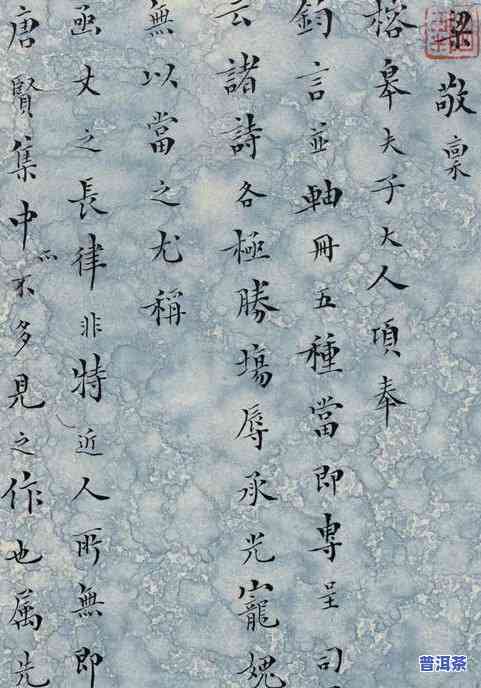 梁敬禀
榕皋夫子大人項奉
鈞言並軸冊五種當即專呈司
云諸詩各極勝場辱承光寵媿
無以當之尤稱
函丈之長律非特近人所無即
唐賢集中亦不多見之作也属先
普洱茶